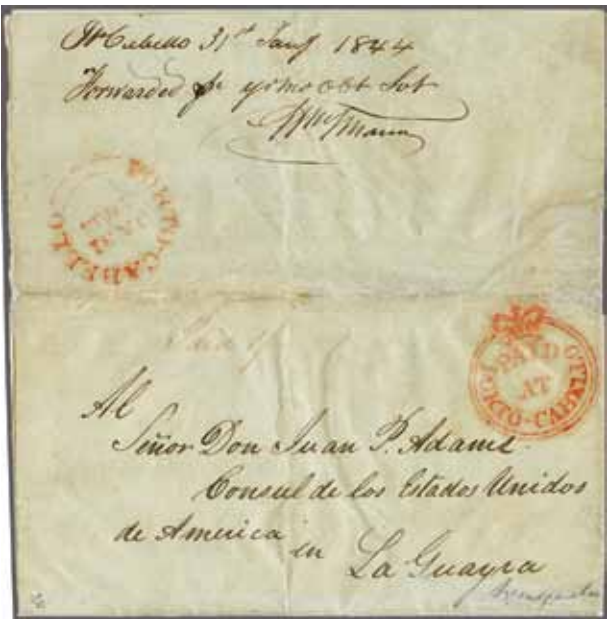 Pto Cabello 31st Jany 1844
Forwarded pr yr mo obt Svt
PORTO-CABELLO
Paid 1/
PAID
AT
PORTO-CABELLO
Al
Señor Don Juan P. Adams
Consul de los Estados Unidos
de America
en
La Guayra